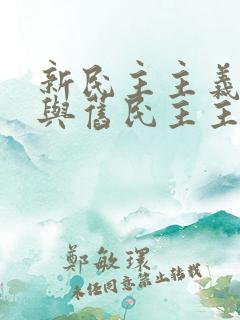 新民主主義
與舊民主主
鄭敏環
未经同意禁止转载